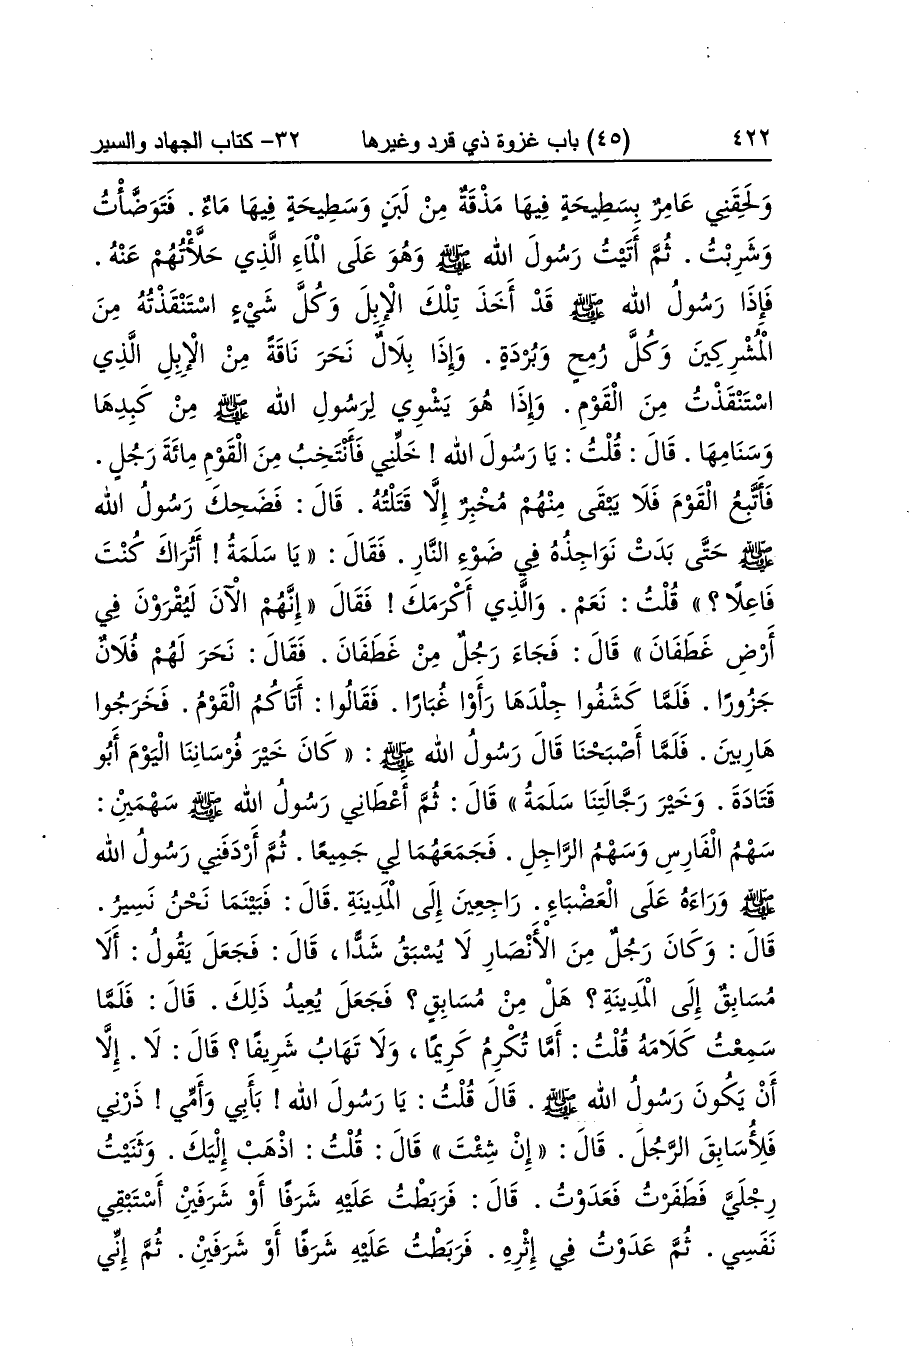 ٤٢٢ (٤٥) باب غزوة ذي قرد وغيرها ٣٢- كتاب الجهاد والسير
وَلَحِقَنِي عَامِرٌ بِسَطِيحَةٍ فِيهَا مَذْقَةٌ مِنْ لَبَنٍ وَسَطِيحَةٍ فِيهَا مَاءٌ . فَتَوَضَّأْتُ
وَشَرِبْتُ . ثُمَّ أَتَيْتُ رَسُولَ الله ﷺ وَهُوَ عَلَى الْمَاءِ الَّذِي حَلَّأْتُهُمْ عَنْهُ .
فَإِذَا رَسُولُ الله ﷺ قَدْ أَخَذَ تِلْكَ الْإِبِلَ وَكُلَّ شَيْءٍ اسْتَنْقَذْتُهُ مِنَ
الْمُشْرِكِينَ وَكُلَّ رُمْحٍ وَبُرْدَةٍ . وَإِذَا بِلَالٌ نَحَرَ نَاقَةً مِنْ الْإِبِلِ الَّذِي
اسْتَنْقَذْتُ مِنَ الْقَوْمِ . وَإِذَا هُوَ يَشْوِي لِرَسُولِ الله ﷺ مِنْ كَبِدِهَا
وَسَنَامِهَا . قَالَ : قُلْتُ : يَا رَسُولَ الله ! خَلِّنِي فَأَنْتَخِبُ مِنَ الْقَوْمِ مِائَةَ رَجُلٍ .
فَأَتَّبِعُ الْقَوْمَ فَلَا يَبْقَى مِنْهُمْ مُخْبِرٌ إِلَّا قَتَلْتُهُ . قَالَ : فَضَحِكَ رَسُولُ الله
ﷺ حَتَّى بَدَتْ نَوَاجِذُهُ فِي ضَوْءِ النَّارِ . فَقَالَ : « يَا سَلَمَةُ ! أَتُرَاكَ كُنْتَ
فَاعِلًا ؟ » قُلْتُ : نَعَمْ . وَالَّذِي أَكْرَمَكَ ! فَقَالَ « إِنَّهُمْ الْآنَ لَيُقْرَوْنَ فِي
أَرْضِ غَطَفَانَ » قَالَ : فَجَاءَ رَجُلٌ مِنْ غَطَفَانَ . فَقَالَ : نَحَرَ لَهُمْ فُلَانٌ
جَزُورًا . فَلَمَّا كَشَفُوا جِلْدَهَا رَأَوْا غُبَارًا . فَقَالُوا : أَتَاكُمُ الْقَوْمُ . فَخَرَجُوا
هَارِبِينَ . فَلَمَّا أَصْبَحْنَا قَالَ رَسُولُ الله ﷺ : « كَانَ خَيْرَ فُرْسَانِنَا الْيَوْمَ أَبُو
قَتَادَةَ . وَخَيْرَ رَجَّالَتِنَا سَلَمَةُ » قَالَ : ثُمَّ أَعْطَانِي رَسُولُ الله ﷺ سَهْمَيْنِ :
سَهْمُ الْفَارِسِ وَسَهْمُ الرَّاجِلِ . فَجَمَعَهُمَا لِي جَمِيعًا . ثُمَّ أَرْدَفَنِي رَسُولُ الله
ﷺ وَرَاءَهُ عَلَى الْعَضْبَاءِ . رَاجِعِينَ إِلَى الْمَدِينَةِ .قَالَ : فَبَيْنَمَا نَحْنُ نَسِيرُ .
قَالَ : وَكَانَ رَجُلٌ مِنَ الْأَنْصَارِ لَا يُسْبَقُ شَدًّا ، قَالَ : فَجَعَلَ يَقُولُ : أَلَا
مُسَابِقٌ إِلَى الْمَدِينَةِ ؟ هَلْ مِنْ مُسَابِقٍ ؟ فَجَعَلَ يُعِيدُ ذَلِكَ . قَالَ : فَلَمَّا
سَمِعْتُ كَلَامَهُ قُلْتُ : أَمَّا تُكْرِمُ كَرِيمًا ، وَلَا تَهَابُ شَرِيفًا ؟ قَالَ : لَا . إِلَّا
أَنْ يَكُونَ رَسُولُ الله ﷺ . قَالَ قُلْتُ : يَا رَسُولَ الله ! بَأَبِي وَأَمِّي ! ذَرْنِي
فَلِأُسَابِقَ الرَّجُلَ . قَالَ : « إِنْ شِئْتَ » قَالَ : قُلْتُ : اذْهَبْ إِلَيْكَ . وَثَنَيْتُ
رِجْلَيَّ فَطَفَرْتُ فَعَدَوْتُ . قَالَ : فَرَبَطْتُ عَلَيْهِ شَرَفًا أَوْ شَرَفَيْنِ أَسْتَبْقِي
نَفَسِي . ثُمَّ عَدَوْتُ فِي إِثْرِهِ . فَرَبَطْتُ عَلَيْهِ شَرَفًا أَوْ شَرَفَيْنِ . ثُمَّ إِنِّي